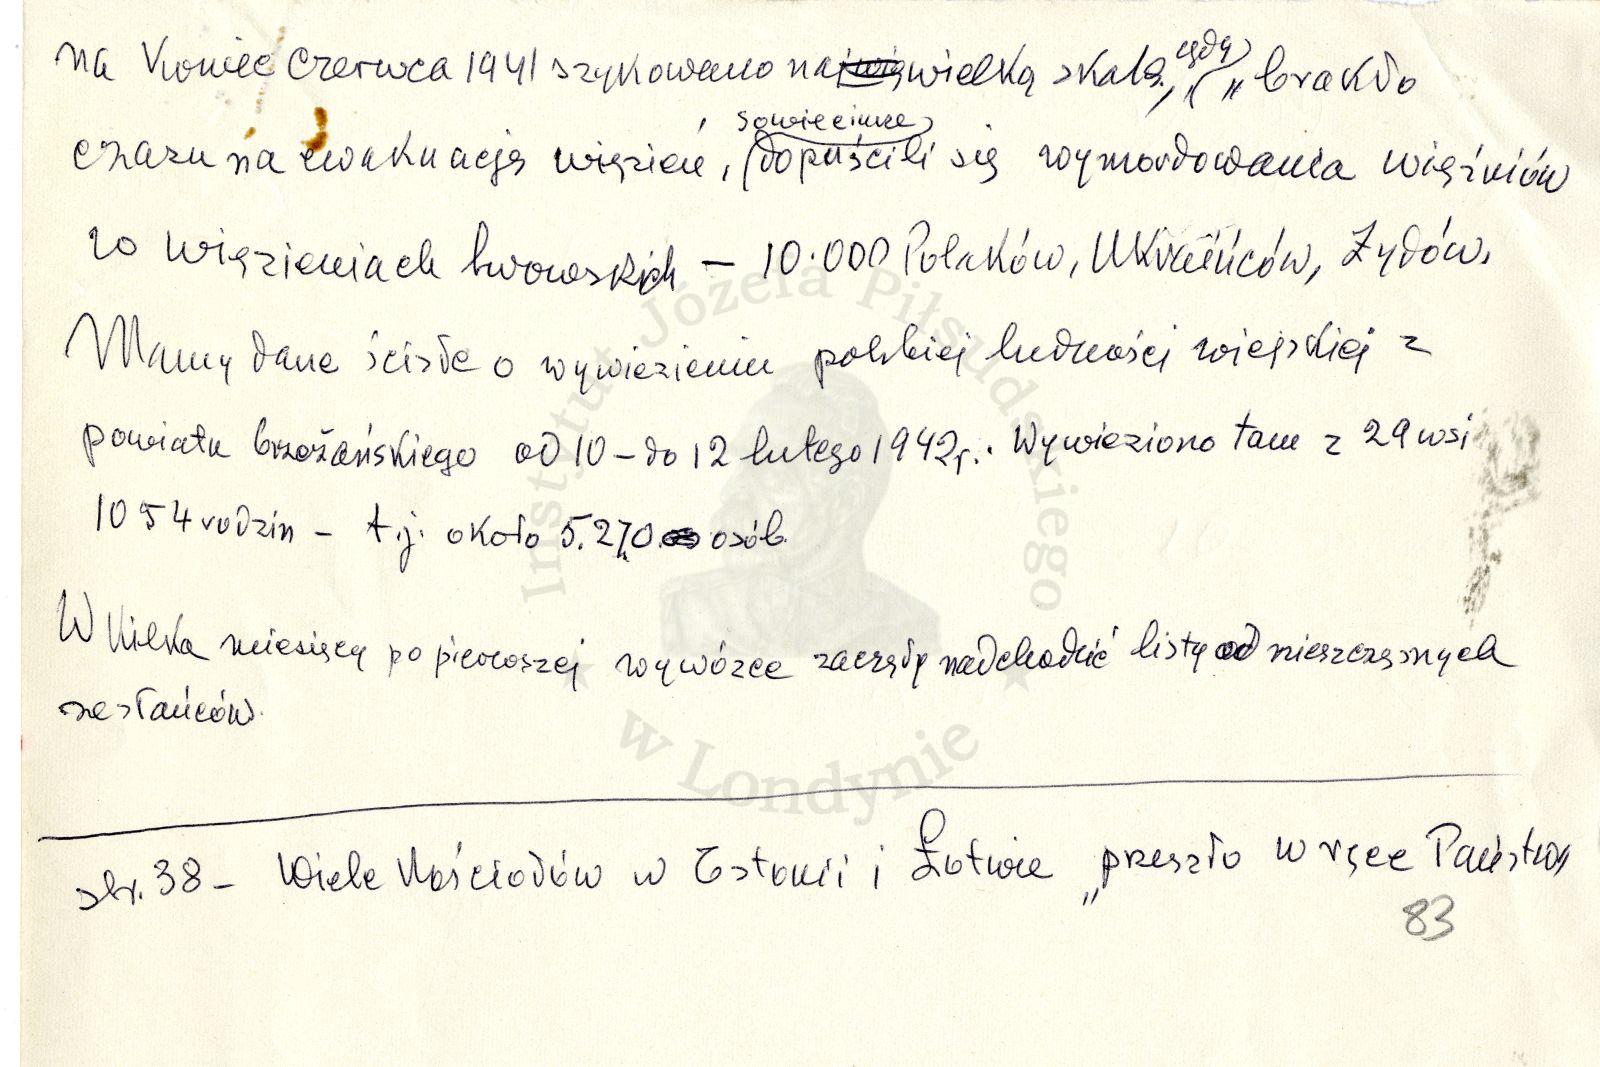 na koniec czerwca 1941 szykowano na wielką skalę, „ gdy brakło
czasu na ewakuację więzień, sowieciarze dopuścili się wymordowania więźniów
w więzieniach lwowskich – 10.000 Polaków, Ukraińców, Żydów.
Mamy dane ścisłe o wywiezieniu polskiej ludności wiejskiej z
powiatu brzeżańskiego od 10 – do 12 lutego 1942 r. Wywieziono tam z 29 wsi
1054 rodzin – t.j. około 5.270 osób.
W kilka miesięcy po pierwszej wywózce zaczęły nadchodzić listy od nieszczęsnych
zesłańców.
str. 38 – Wiele kościołów w Estonii i Łotwie „przeszło w ręce Państwa
83
Instytut Józefa Piłsudskiego
w Londynie